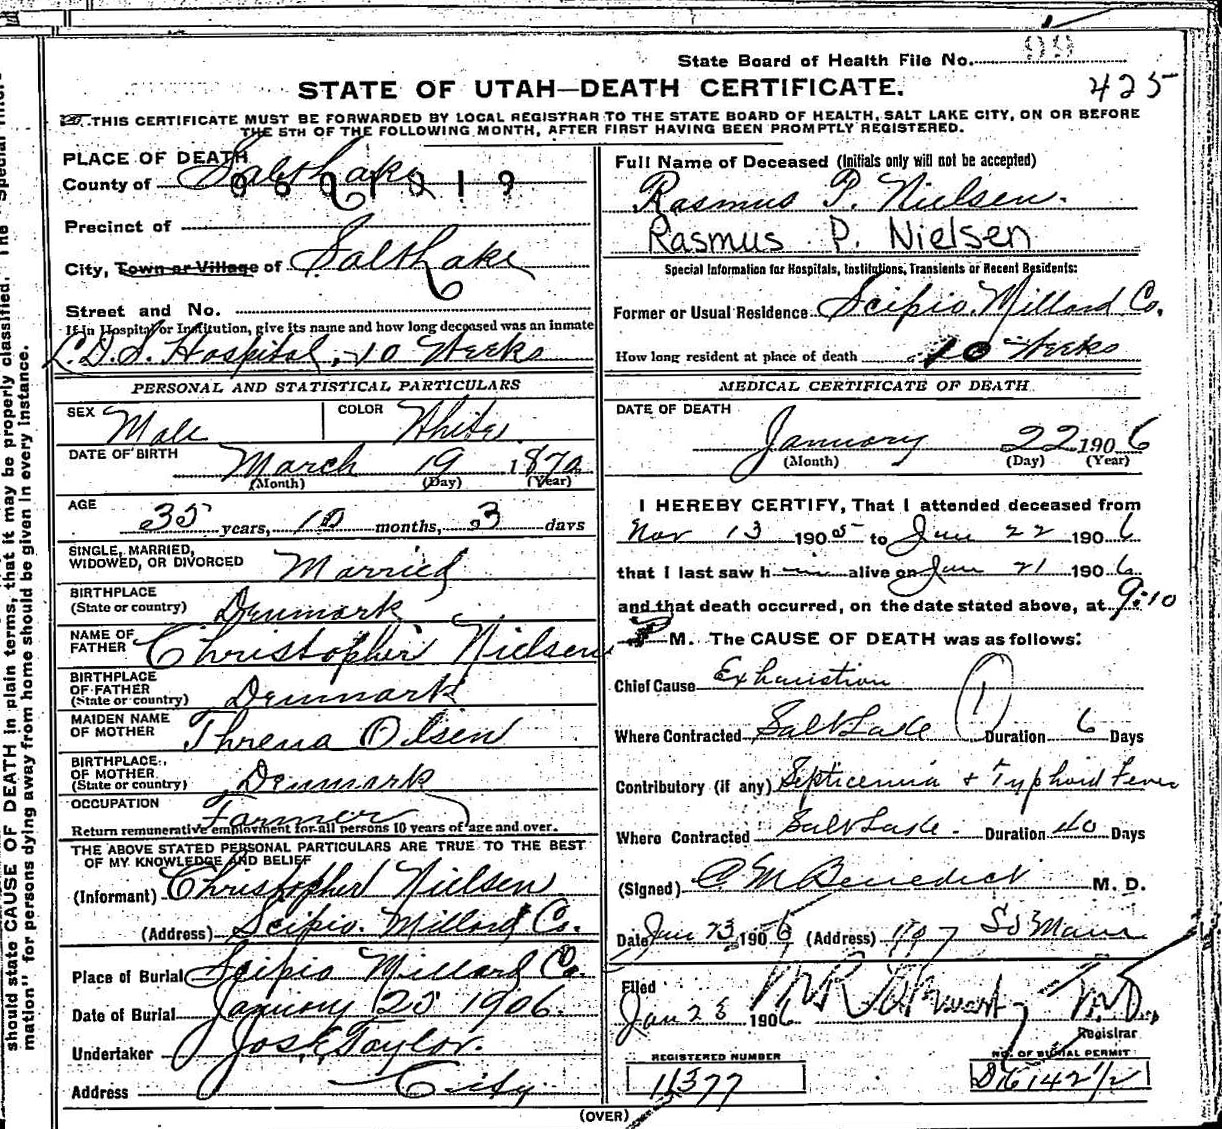 State Board of Health File No. 99
425
STATE OF UTAH—DEATH CERTIFICATE.
THIS CERTIFICATE MUST BE FORWARDED BY LOCAL REGISTRAR TO THE STATE BOARD OF HEALTH, SALT LAKE CITY, ON OR BEFORE
THE 5TH OF THE FOLLOWING MONTH, AFTER FIRST HAVING BEEN PROMPTLY REGISTERED.
PLACE OF DEATH
County of Salt Lake
Precinct of
City, Town or Village of Salt Lake
Street and No.
If in Hospital or Institution, give its name and how long deceased was an inmate
L.D.S. Hospital, 10 Weeks
PERSONAL AND STATISTICAL PARTICULARS
SEX Male COLOR White
DATE OF BIRTH March 19 1870
(Month) (Day) (Year)
AGE 35 years, 10 months, 3 days
SINGLE, MARRIED,
WIDOWED, OR DIVORCED Married
BIRTHPLACE
(State or country) Denmark
NAME OF
FATHER Christopher Nielsen
BIRTHPLACE
OF FATHER
(State or country) Denmark
MAIDEN NAME
OF MOTHER Threna Olsen
BIRTHPLACE
OF MOTHER
(State or country) Denmark
OCCUPATION Farmer
Return remunerative employment for all persons 10 years of age and over.
THE ABOVE STATED PERSONAL PARTICULARS ARE TRUE TO THE BEST
OF MY KNOWLEDGE AND BELIEF
(Informant) Christopher Nielsen
(Address) Scipio. Millard Co.
Place of Burial Scipio Millard Co.
Date of Burial January 25 1906.
Undertaker Jos E Taylor.
Address City
Full Name of Deceased (Initials only will not be accepted)
Rasmus P. Nielsen.
Rasmus P. Nielsen
Special Information for Hospitals, Institutions, Transients or Recent Residents:
Former or Usual Residence Scipio. Millard Co.
How long resident at place of death 10 Weeks
MEDICAL CERTIFICATE OF DEATH
DATE OF DEATH
January 22 1906
(Month) (Day) (Year)
I HEREBY CERTIFY, That I attended deceased from
Nov 13 1905 to Jan 22 1906
that I last saw h im alive on Jan 21 1906
and that death occurred, on the date stated above, at 9:10
M. The CAUSE OF DEATH was as follows:
Chief Cause Exhaustion
Where Contracted Salt Lake Duration 6 Days
Contributory (if any) Septicemia & Typhoid Fever
Where Contracted Salt Lake Duration 40 Days
(Signed) C M Benedict M. D.
Date Jan 23 1906 (Address) So Main
Filed
Jan 23 1906 M.D.
Registrar
REGISTERED NUMBER NO. OF BURIAL PERMIT
11377 D 6142 1/2
(OVER)
should state CAUSE OF DEATH in plain terms, that it may be properly classified. The "Special Infor-
mation" for persons dying away from home should be given in every instance.